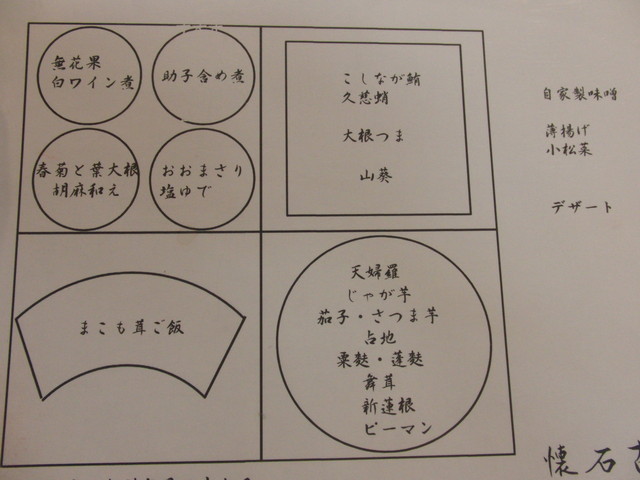 無花果
白ワイン煮
助子含め煮
春菊と葉大根
胡麻和え
おおまさり
塩ゆで
こしなが鮪
久慈蛸
大根つま
山葵
まこも茸ご飯
天婦羅
じゃが芋
茄子・さつま芋
占地
粟麩・蓬麩
舞茸
新蓮根
ピーマン
自家製味噌
薄揚げ
小松菜
デザート
懐石